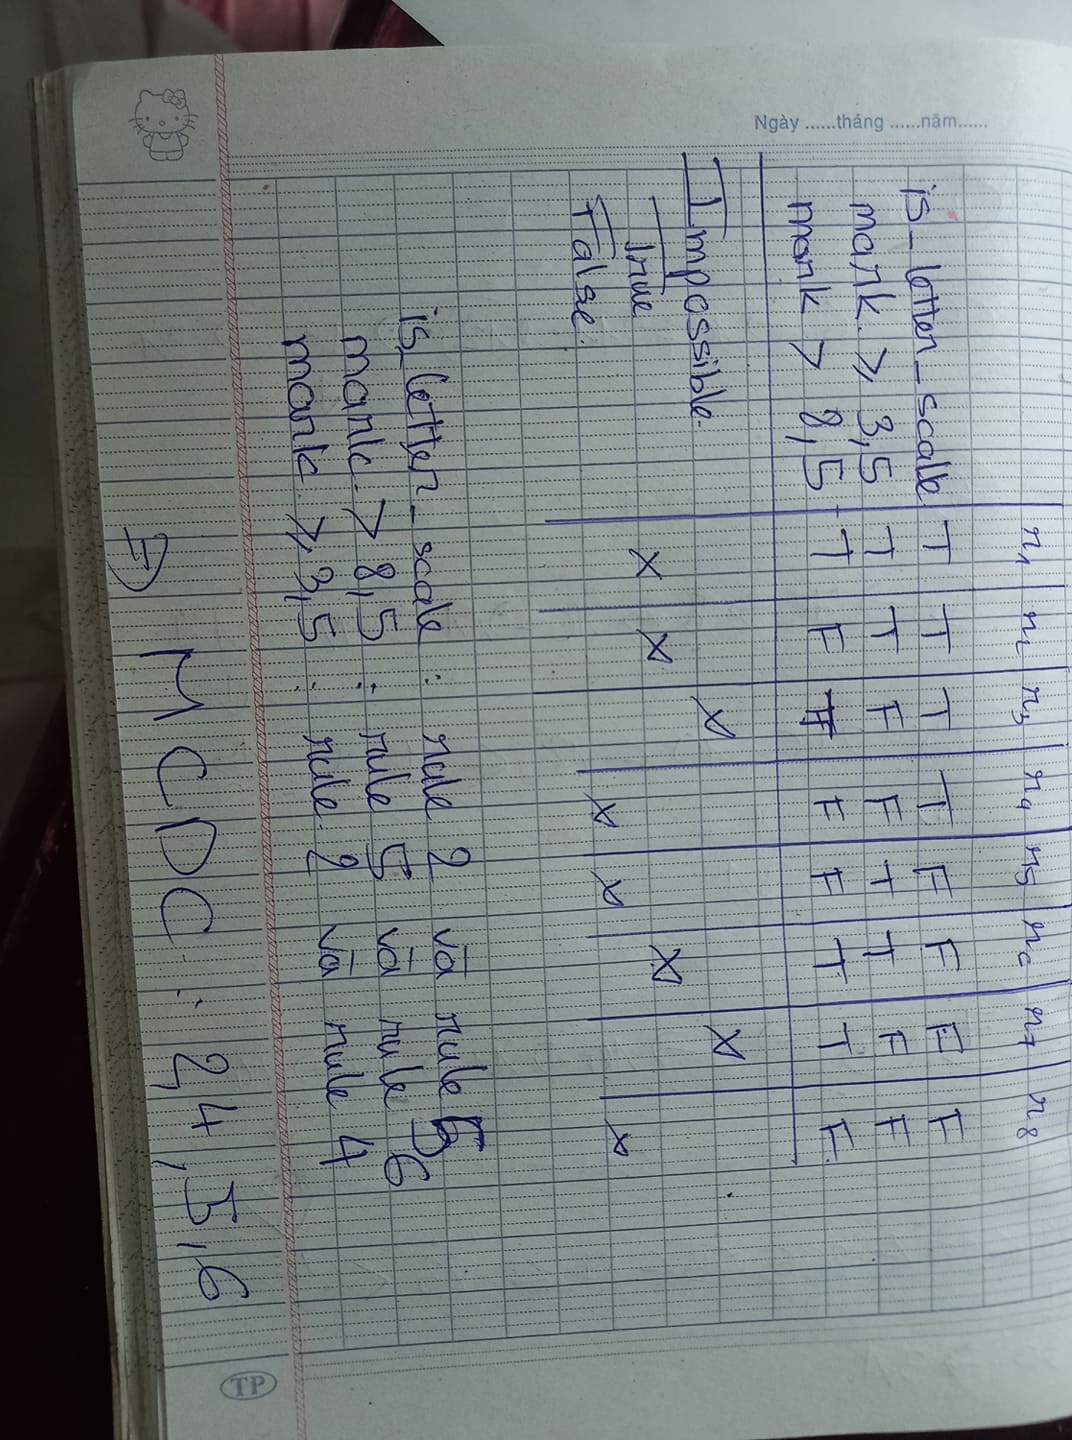 Ngày ......tháng ......năm......
r1 r2 r3 r4 r5 r6 r7 r8
is_letter_scale T T T T F F F F
mark ≥ 3,5 T T F F T T F F
mark > 8,5 T F T F F T T F
Impossible. X X
True X X X
False. X X X
is_letter_scale : rule 2 và rule 5
mark > 8,5 : rule 5 và rule 6
mark ≥ 3,5 : rule 2 và rule 4
⇒ MCDC : 2,4,5,6
TP